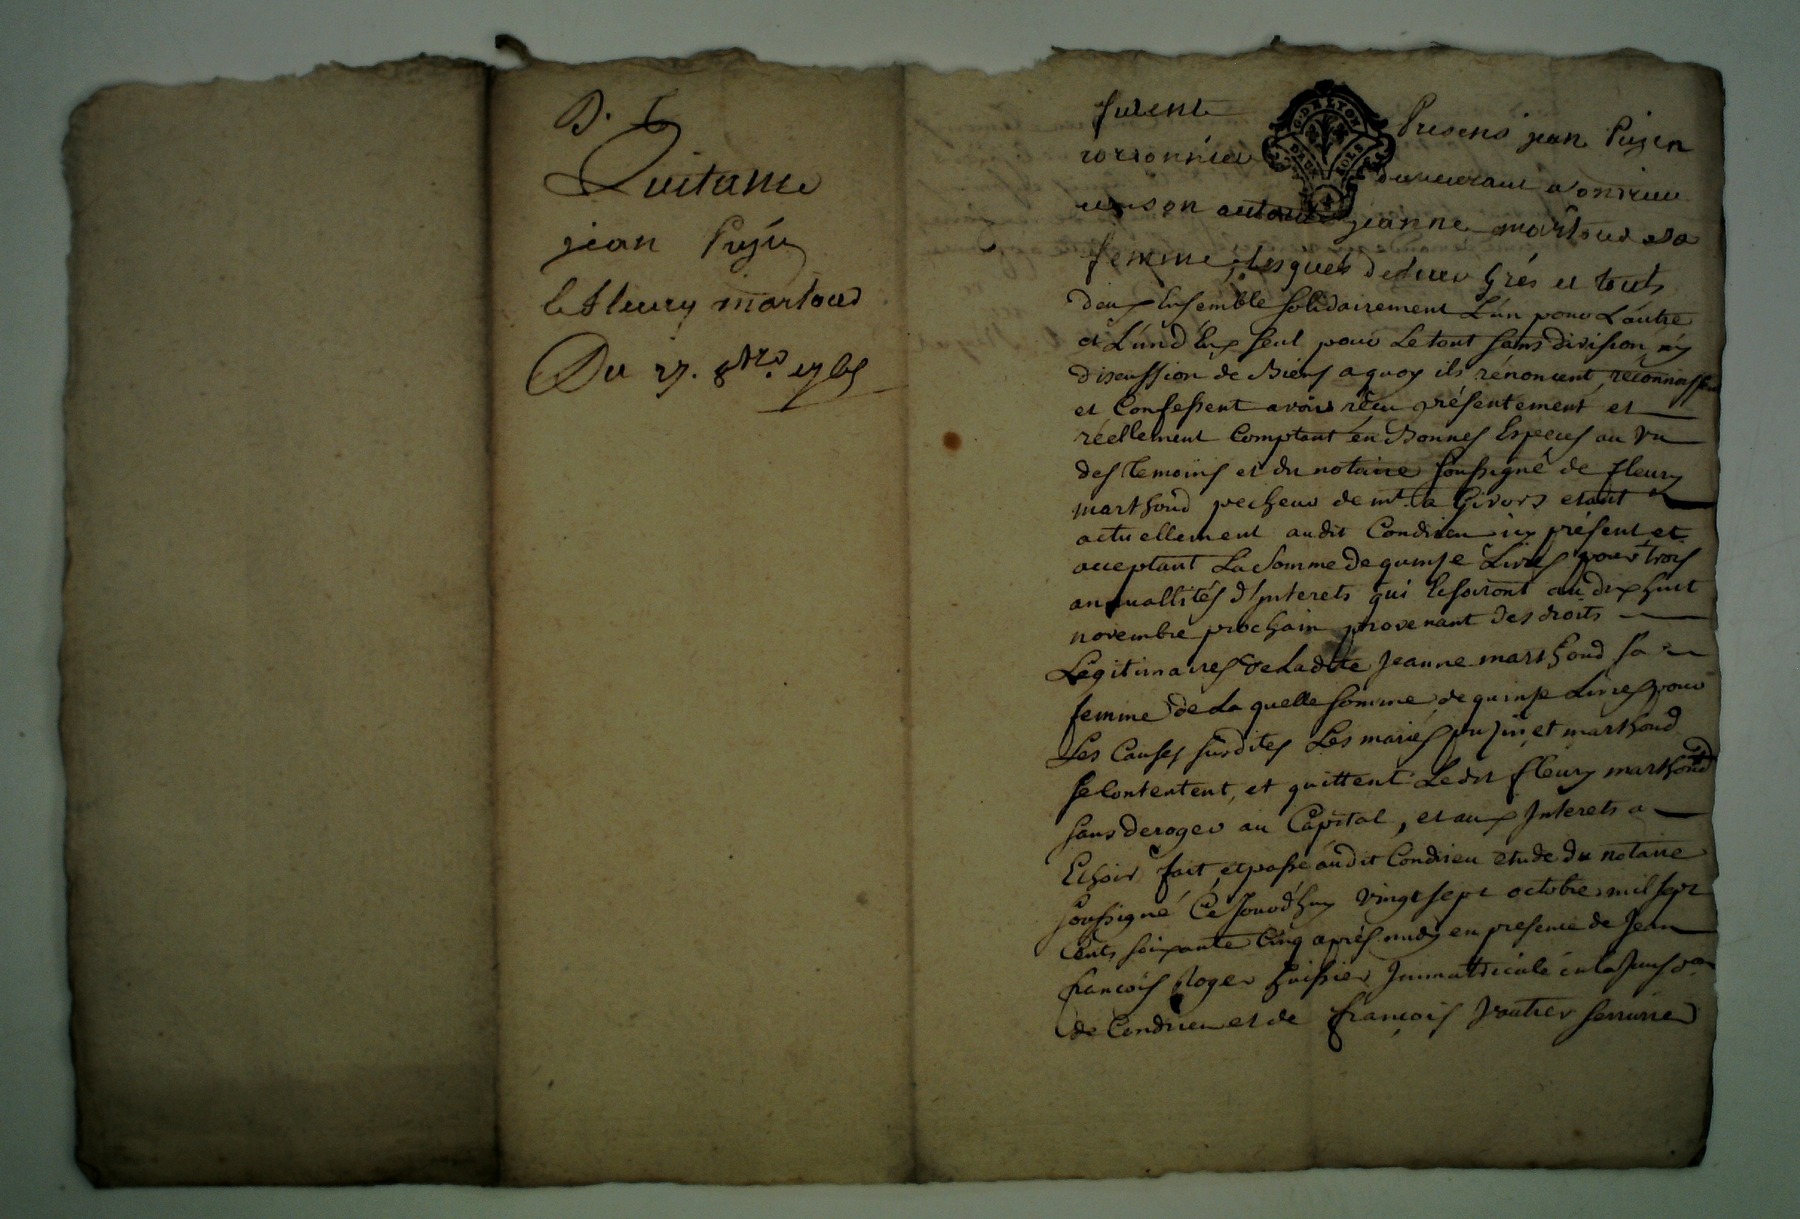 Quitance
jean Pujin
et fleury martoud
Du 27. 8bre. 1765
furent Presens jean Pujin
cordonnier demeurant a Condrieu
G. DE LYON
DEUX SOLS
jeanne martoud sa
femme, lesquels de leur grés et touts
deux Ensemble solidairement L'un pour L'autre
et L'un d'Eux seul pour Le tout sans division n'y
discussion de Biens a quoy ils rénoncent, reconnoissent
et Confessent avoir réçu présentement et
réellement Comptant én Bonnes Especes au vu
des temoins et du notaire soussigné de fleury
marthoud pecheur de a Givors etant
actuellement audit Condrieu icy présent et
acceptant La somme de quinse Livres pour trois
annuallités d'Interets qui Echoiront au dix huit
novembre prochain provenant des droits
Légitimaires de Ladite Jeanne marthoud sa
femme de La quelle somme de quinse Livres pour
Les Causes susdites Les mariés pujin et marthoud
se Contentent, et quittent Ledit fleury marthoud
sans deroger au Capital, et aux Interets a
Echoir fait, et passé audit Condrieu etude du notaire
soussigné Cé Jourd'huy vingt sept octobre mil sept
Cents soixante Cinq aprés midy en presence de Jean
francois Roger huissier Immatriculé en la
de Condrieu et de françois Vautier serrurier